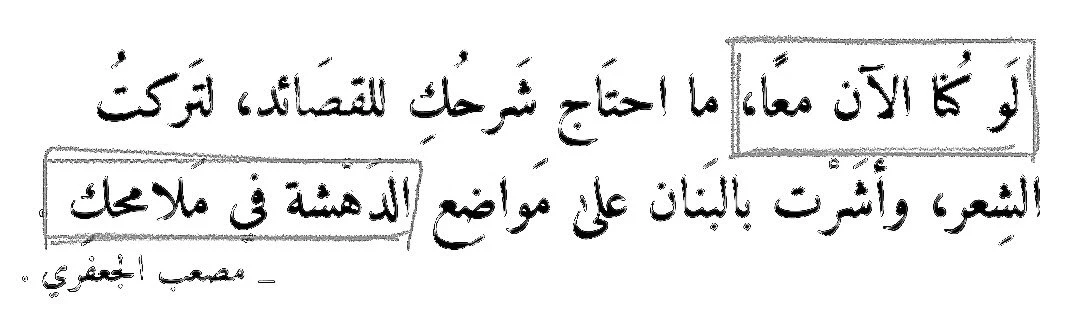 لَو كُنا الآن معًا، ما احتَاج شَرحُكِ للقصَائد، لتَركتُ
الشِعر، وأشَرْت بالبَنان على مَواضع الدَهْشة في مَلامحكِ
_ مصعب الجعفري .